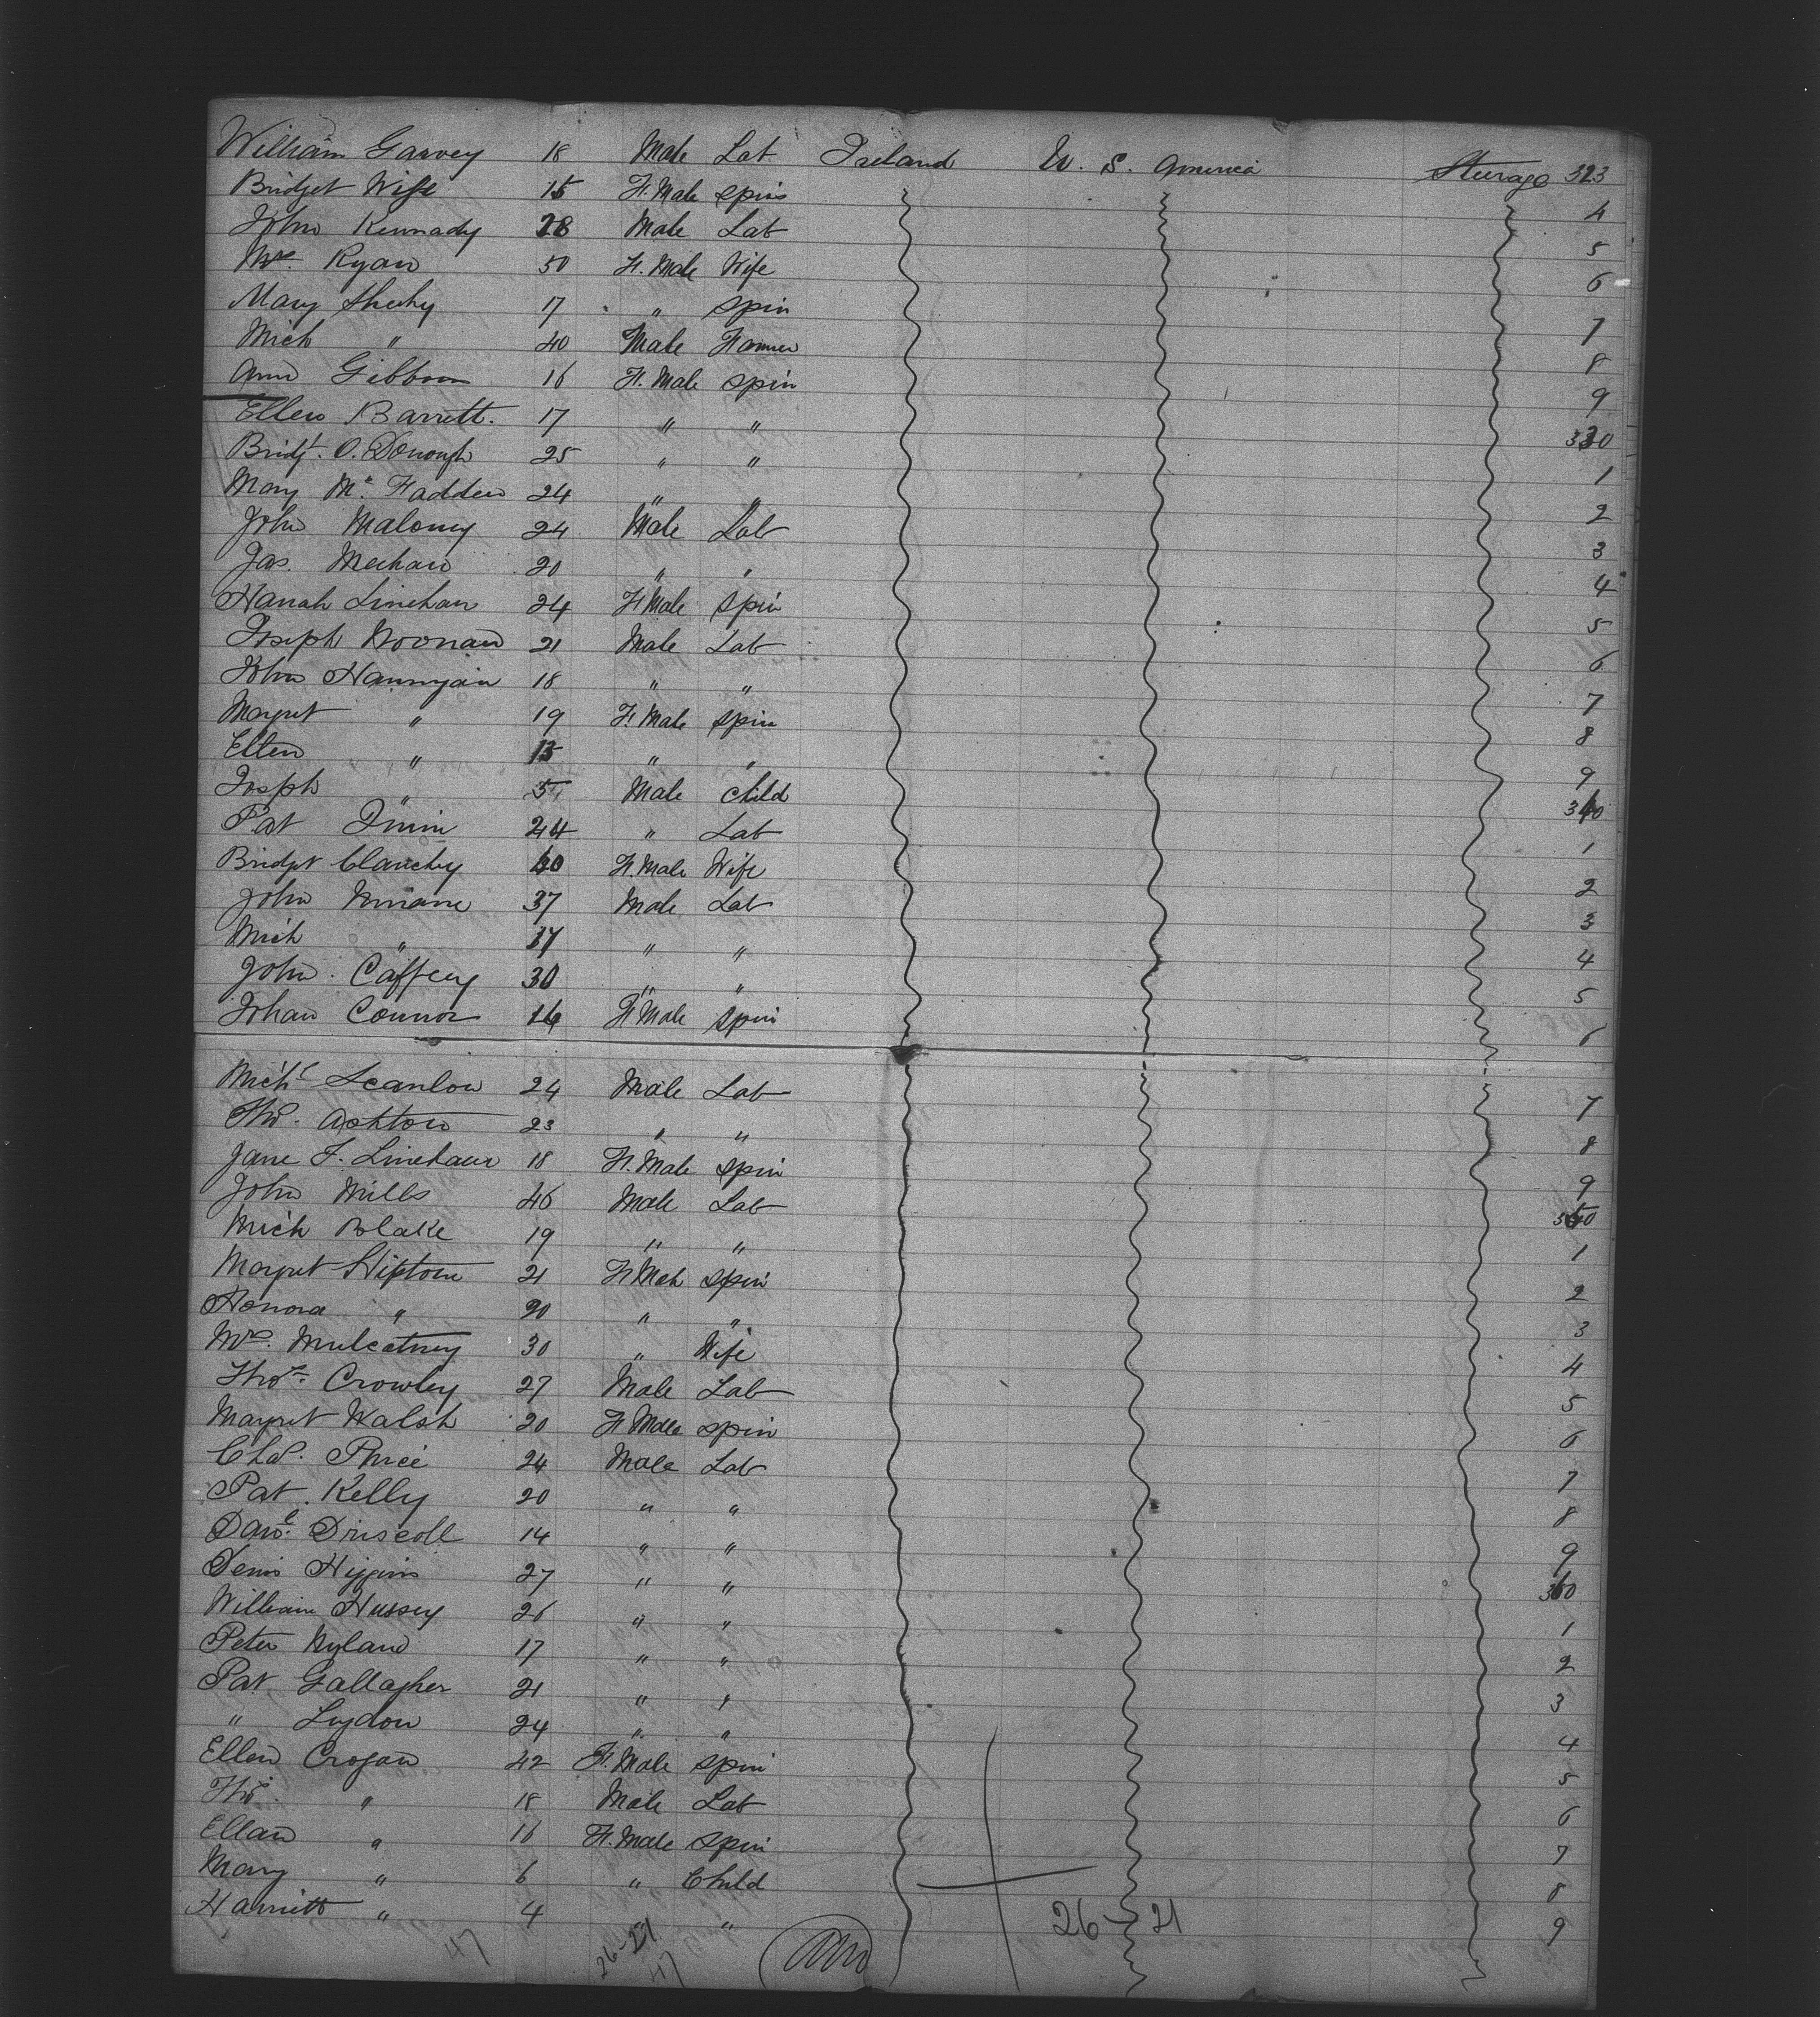 William Garvey 18 Male Lab Ireland U. S. America Steerage 323
Bridget Wife 15 F. Male Spin 4
John Kennady 28 Male Lab 5
Mrs. Ryan 50 F. Male Wife 6
Mary Sheehy 17 " Spin 7
Mich " 40 Male Farmer 8
Ann Gibbon 16 F. Male Spin 9
Ellen Barrett. 17 " " 330
Bridgt. O. Donough 25 " " 1
Mary Mc. Fadden 24 " " 2
John Maloney 24 Male Lab 3
Jas. Meehan 20 " " 4
Hanah Linehan 24 F Male Spin 5
Joseph Noonan 21 Male Lab 6
John Hannyan 18 " " 7
Margret " 19 F. Male Spin 8
Ellen " 15 " " 9
Joseph " 5 Male Child 340
Pat Quin 24 " Lab 1
Bridget Clanchy 40 F. Male Wife 2
John 37 Male Lab 3
Mich " 17 " " 4
John. Caffrey 30 " " 5
Johan Connor 16 F Male Spin 6
Michl Scanlon 24 Male Lab 7
Thos. Ashton 23 " " 8
Jane F. Linehan 18 F. Male Spin 9
John Mills 46 Male Lab 350
Mich Blake 19 " " 1
Margret 21 F Male Spin 2
Honora " 20 " " 3
Mrs. Mulcatney 30 " Wife 4
Thos. Crowley 27 Male Lab 5
Margret Walsh 20 F Male Spin 6
Chas. Price 24 Male Lab 7
Pat. Kelly 20 " " 8
Danl. Driscoll 14 " " 9
Denis Higgins 27 " " 360
William Hussey 26 " " 1
Peter Nyland 17 " " 2
Pat Gallagher 21 " " 3
" Lydon 24 " " 4
Ellen Crogan 42 F. Male Spin 5
Thos. " 18 Male Lab 6
Ellan " 16 F. Male Spin 7
Mary " 6 " Child 8
Harriett " 4 " " 9
26-21
47 26-21
47